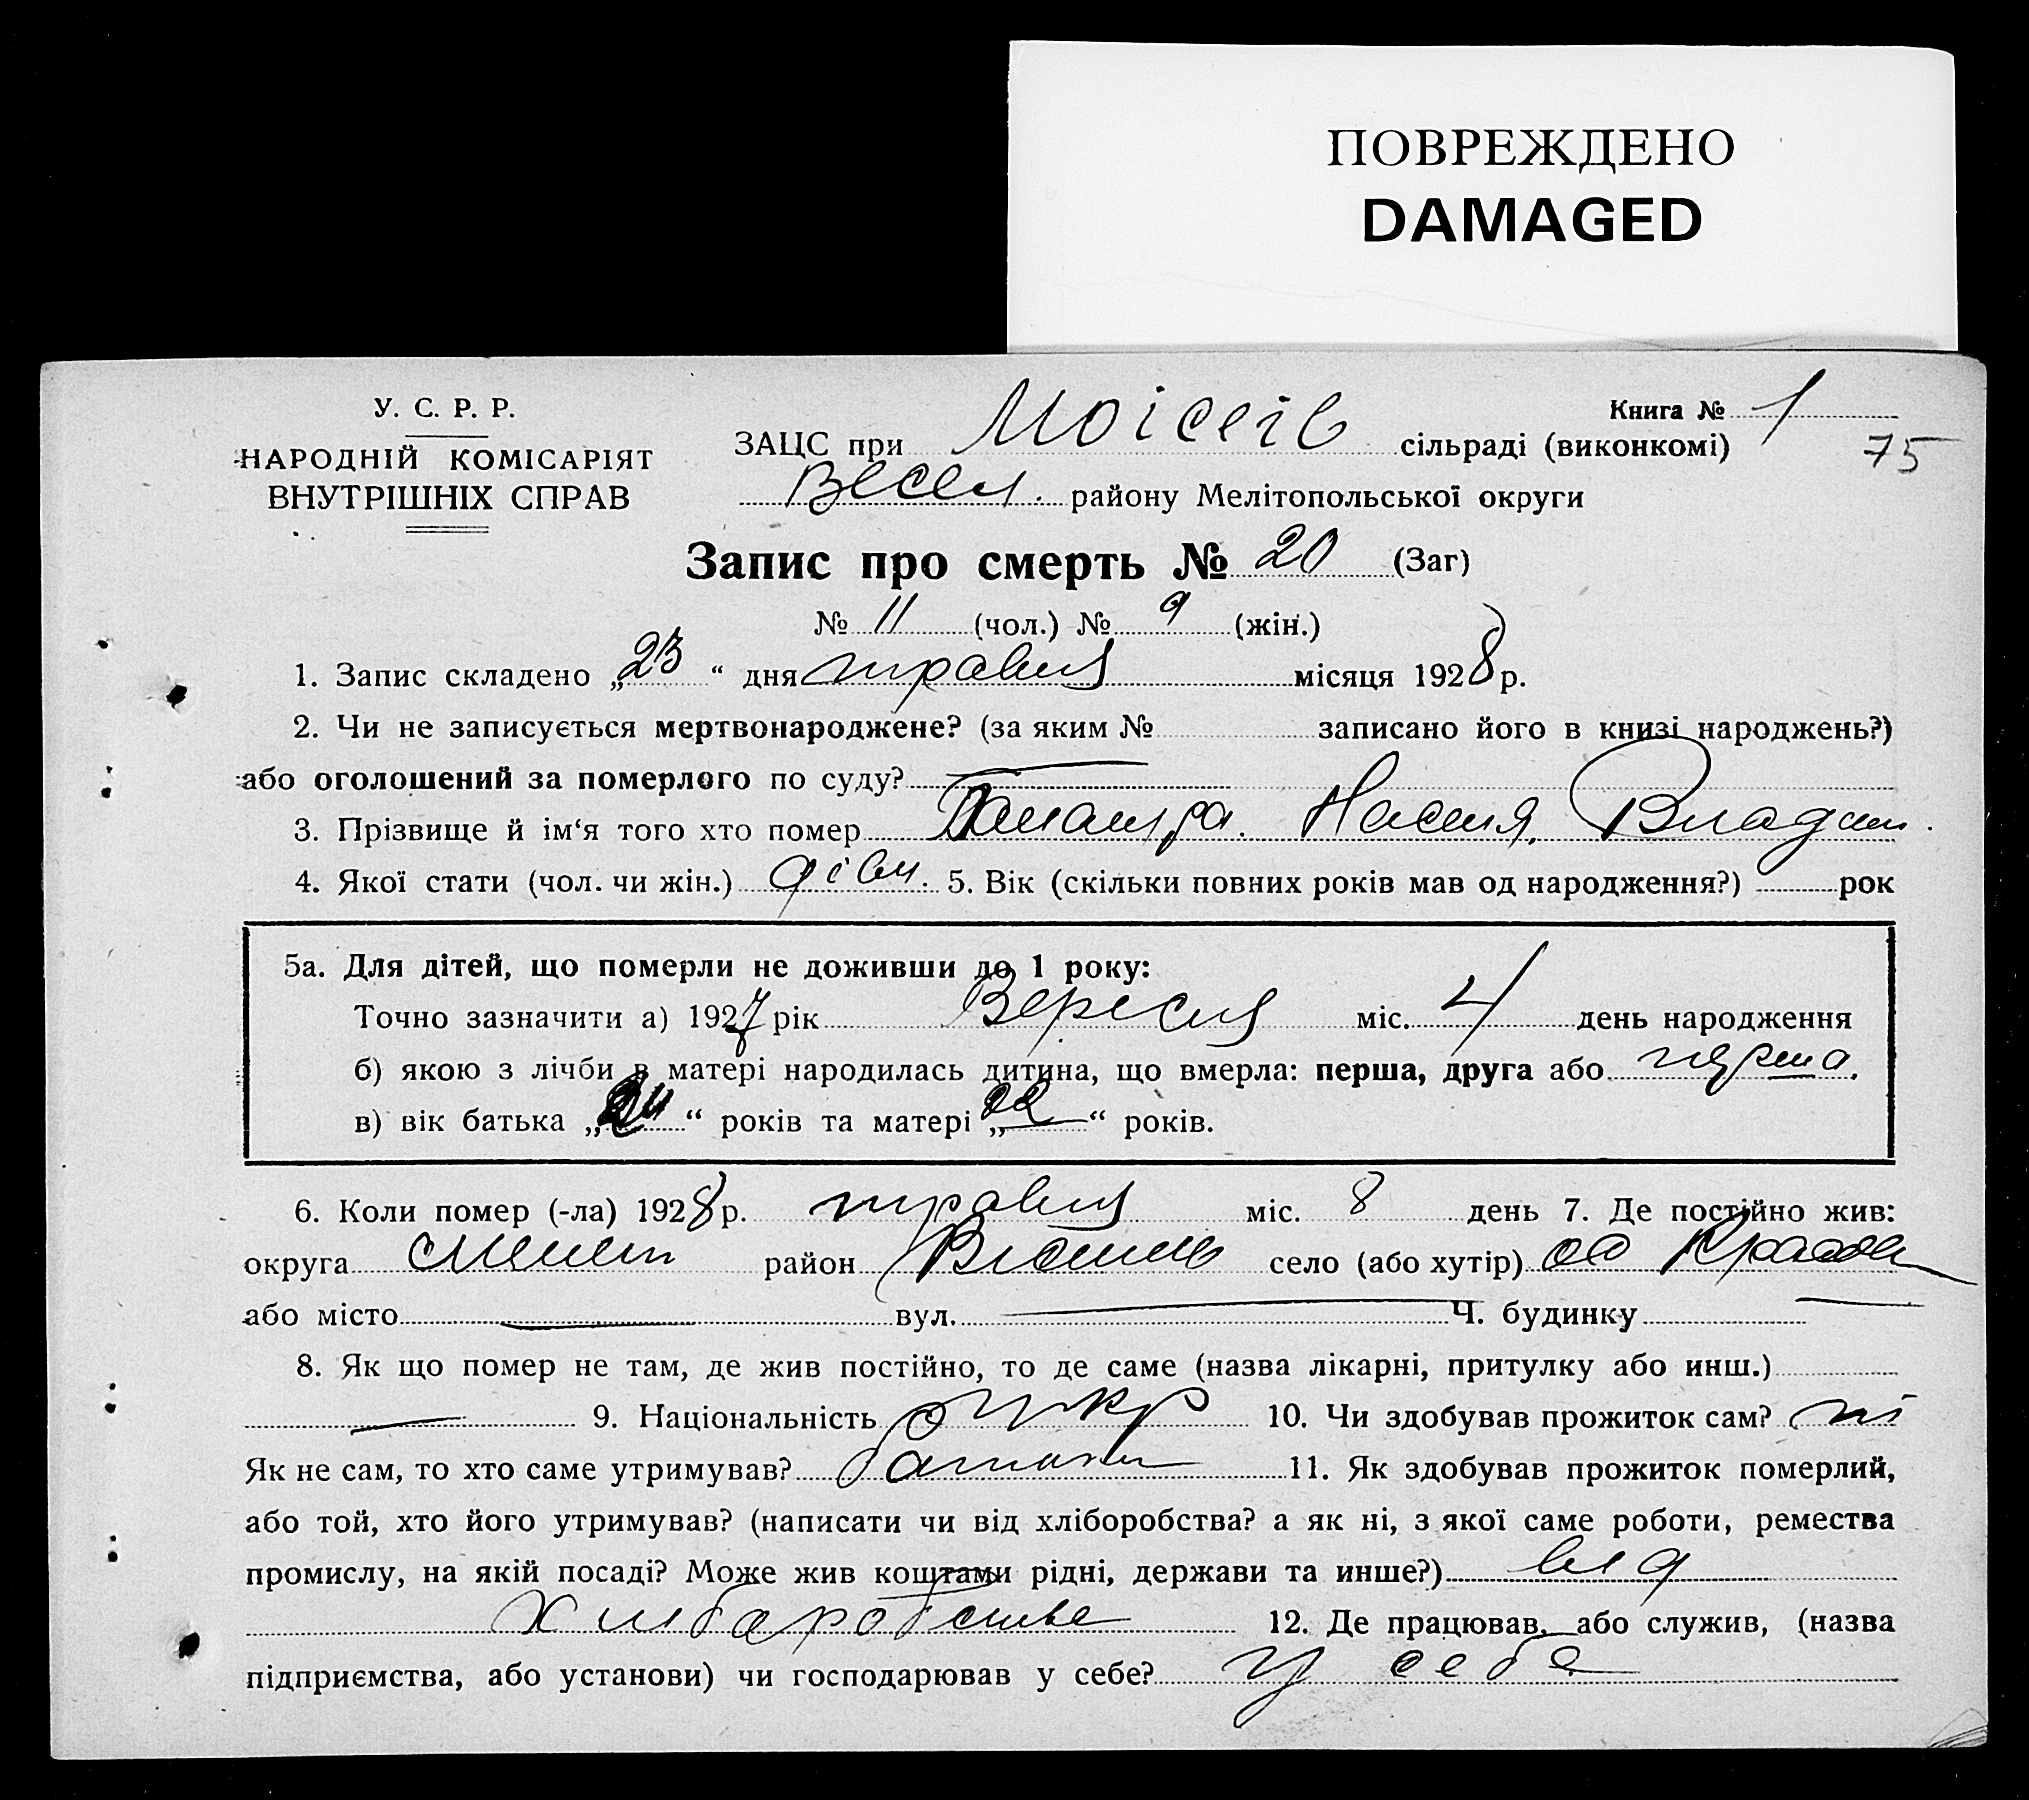 ПОВРЕЖДЕНО
DAMAGED
У. С. Р. Р.
НАРОДНІЙ КОМІСАРІЯТ
ВНУТРІШНІХ СПРАВ
Книга № 1
75
ЗАЦС при Моісеїв сільраді (виконкомі)
Весел. району Мелітопольської округи
Запис про смерть № 20 (Заг)
№ 11 (чол.) № 9 (жін.)
1. Запис складено „23“ дня травня місяця 1928 р.
2. Чи не записується мертвонароджене? (за яким № записано його в книзі народжень?)
або оголошений за померлого по суду?
3. Прізвище й ім‘я того хто помер Настя Владим.
4. Якої стати (чол. чи жін.) дівч. 5. Вік (скільки повних років мав од народження?) рок
5а. Для дітей, що померли не доживши до 1 року:
Точно зазначити а) 1927 рік Вересня міс. 4 день народження
б) якою з лічби в матері народилась дитина, що вмерла: перша, друга або перша.
в) вік батька „ “ років та матері „22“ років.
6. Коли помер (-ла) 1928 р. травня міс. 8 день 7. Де постійно жив:
округа Меліт район село (або хутір)
або місто вул. Ч. будинку
8. Як що помер не там, де жив постійно, то де саме (назва лікарні, притулку або инш.)
9. Національність Укр 10. Чи здобував прожиток сам? ні
Як не сам, то хто саме утримував? батьки 11. Як здобував прожиток померлий,
або той, хто його утримував? (написати чи від хліборобства? а як ні, з якої саме роботи, ремества
промислу, на якій посаді? Може жив коштами рідні, держави та инше?) від
хліборобства 12. Де працював, або служив, (назва
підприємства, або установи) чи господарював у себе? у себе